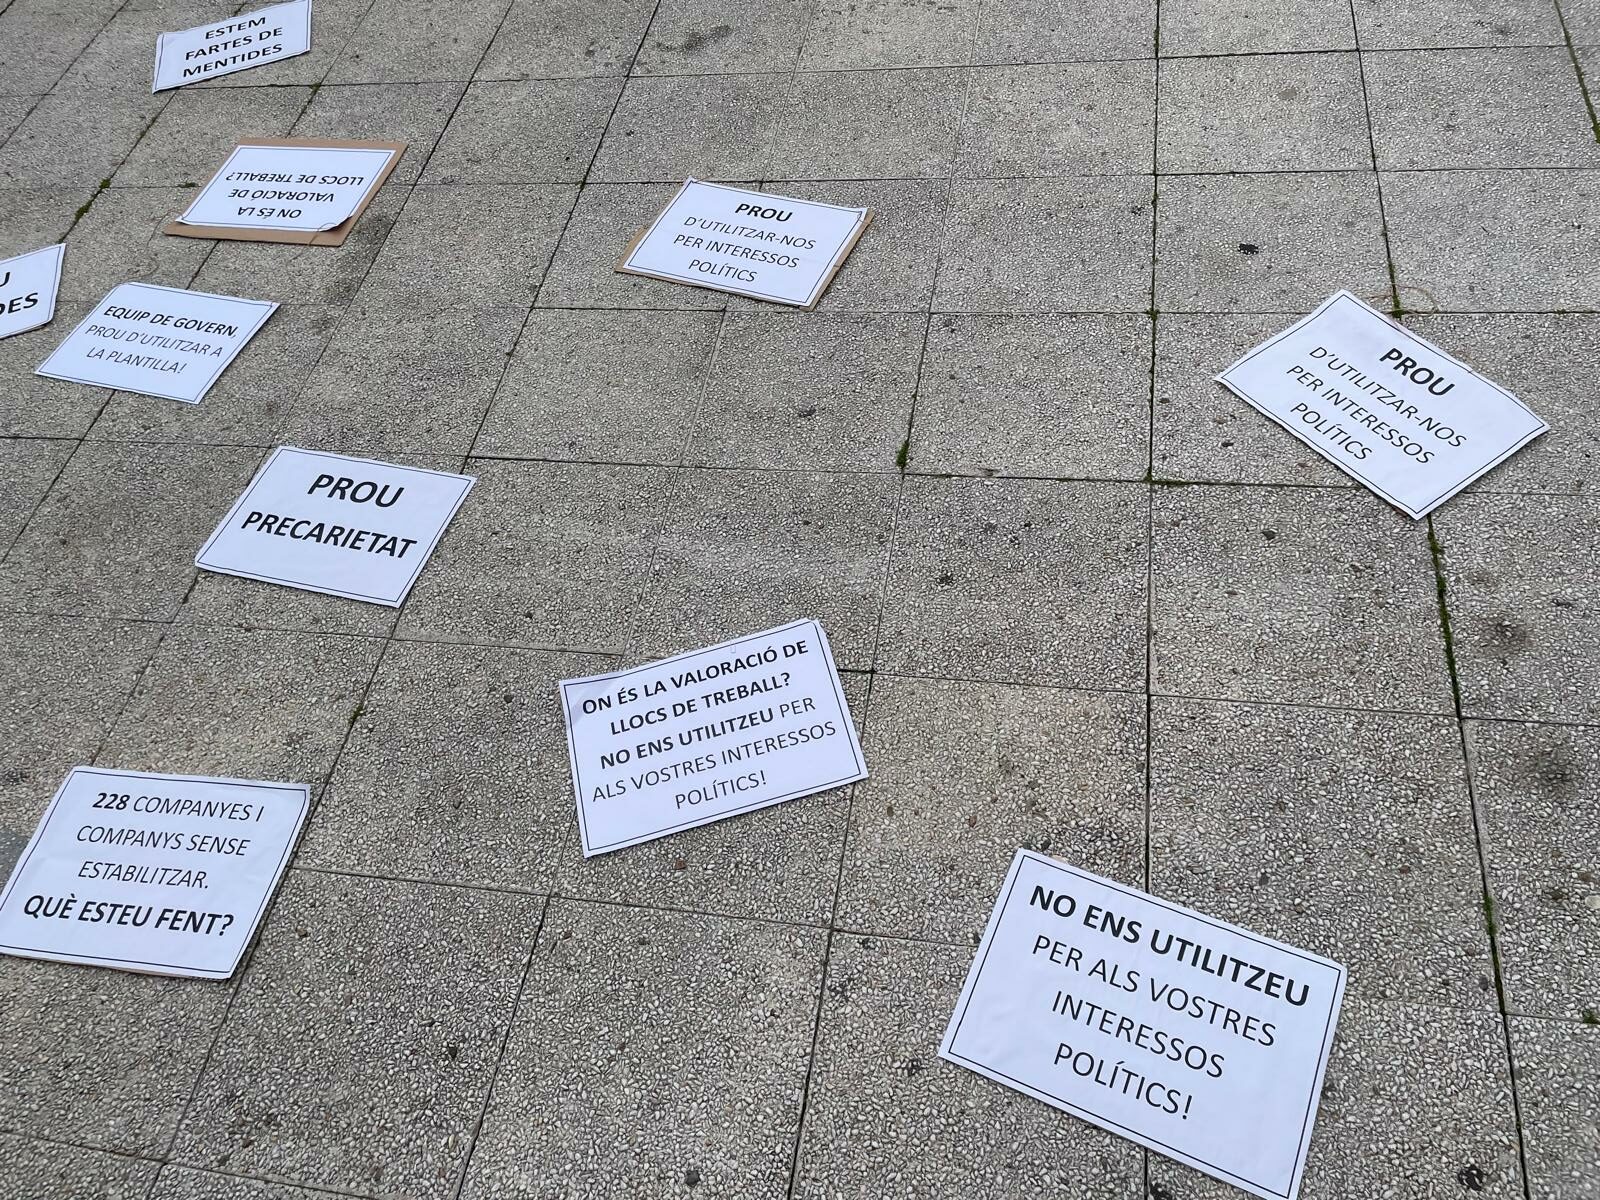 ESTEM
FARTES DE
MENTIDES
ON ÉS LA
VALORACIÓ DE
LLOCS DE TREBALL?
PROU
D'UTILITZAR-NOS
PER INTERESSOS
POLÍTICS
EQUIP DE GOVERN,
PROU D'UTILITZAR A
LA PLANTILLA!
PROU
D'UTILITZAR-NOS
PER INTERESSOS
POLÍTICS
PROU
PRECARIETAT
ON ÉS LA VALORACIÓ DE
LLOCS DE TREBALL?
NO ENS UTILITZEU PER
ALS VOSTRES INTERESSOS
POLÍTICS!
228 COMPANYES I
COMPANYS SENSE
ESTABILITZAR.
QUÈ ESTEU FENT?
NO ENS UTILITZEU
PER ALS VOSTRES
INTERESSOS
POLÍTICS!